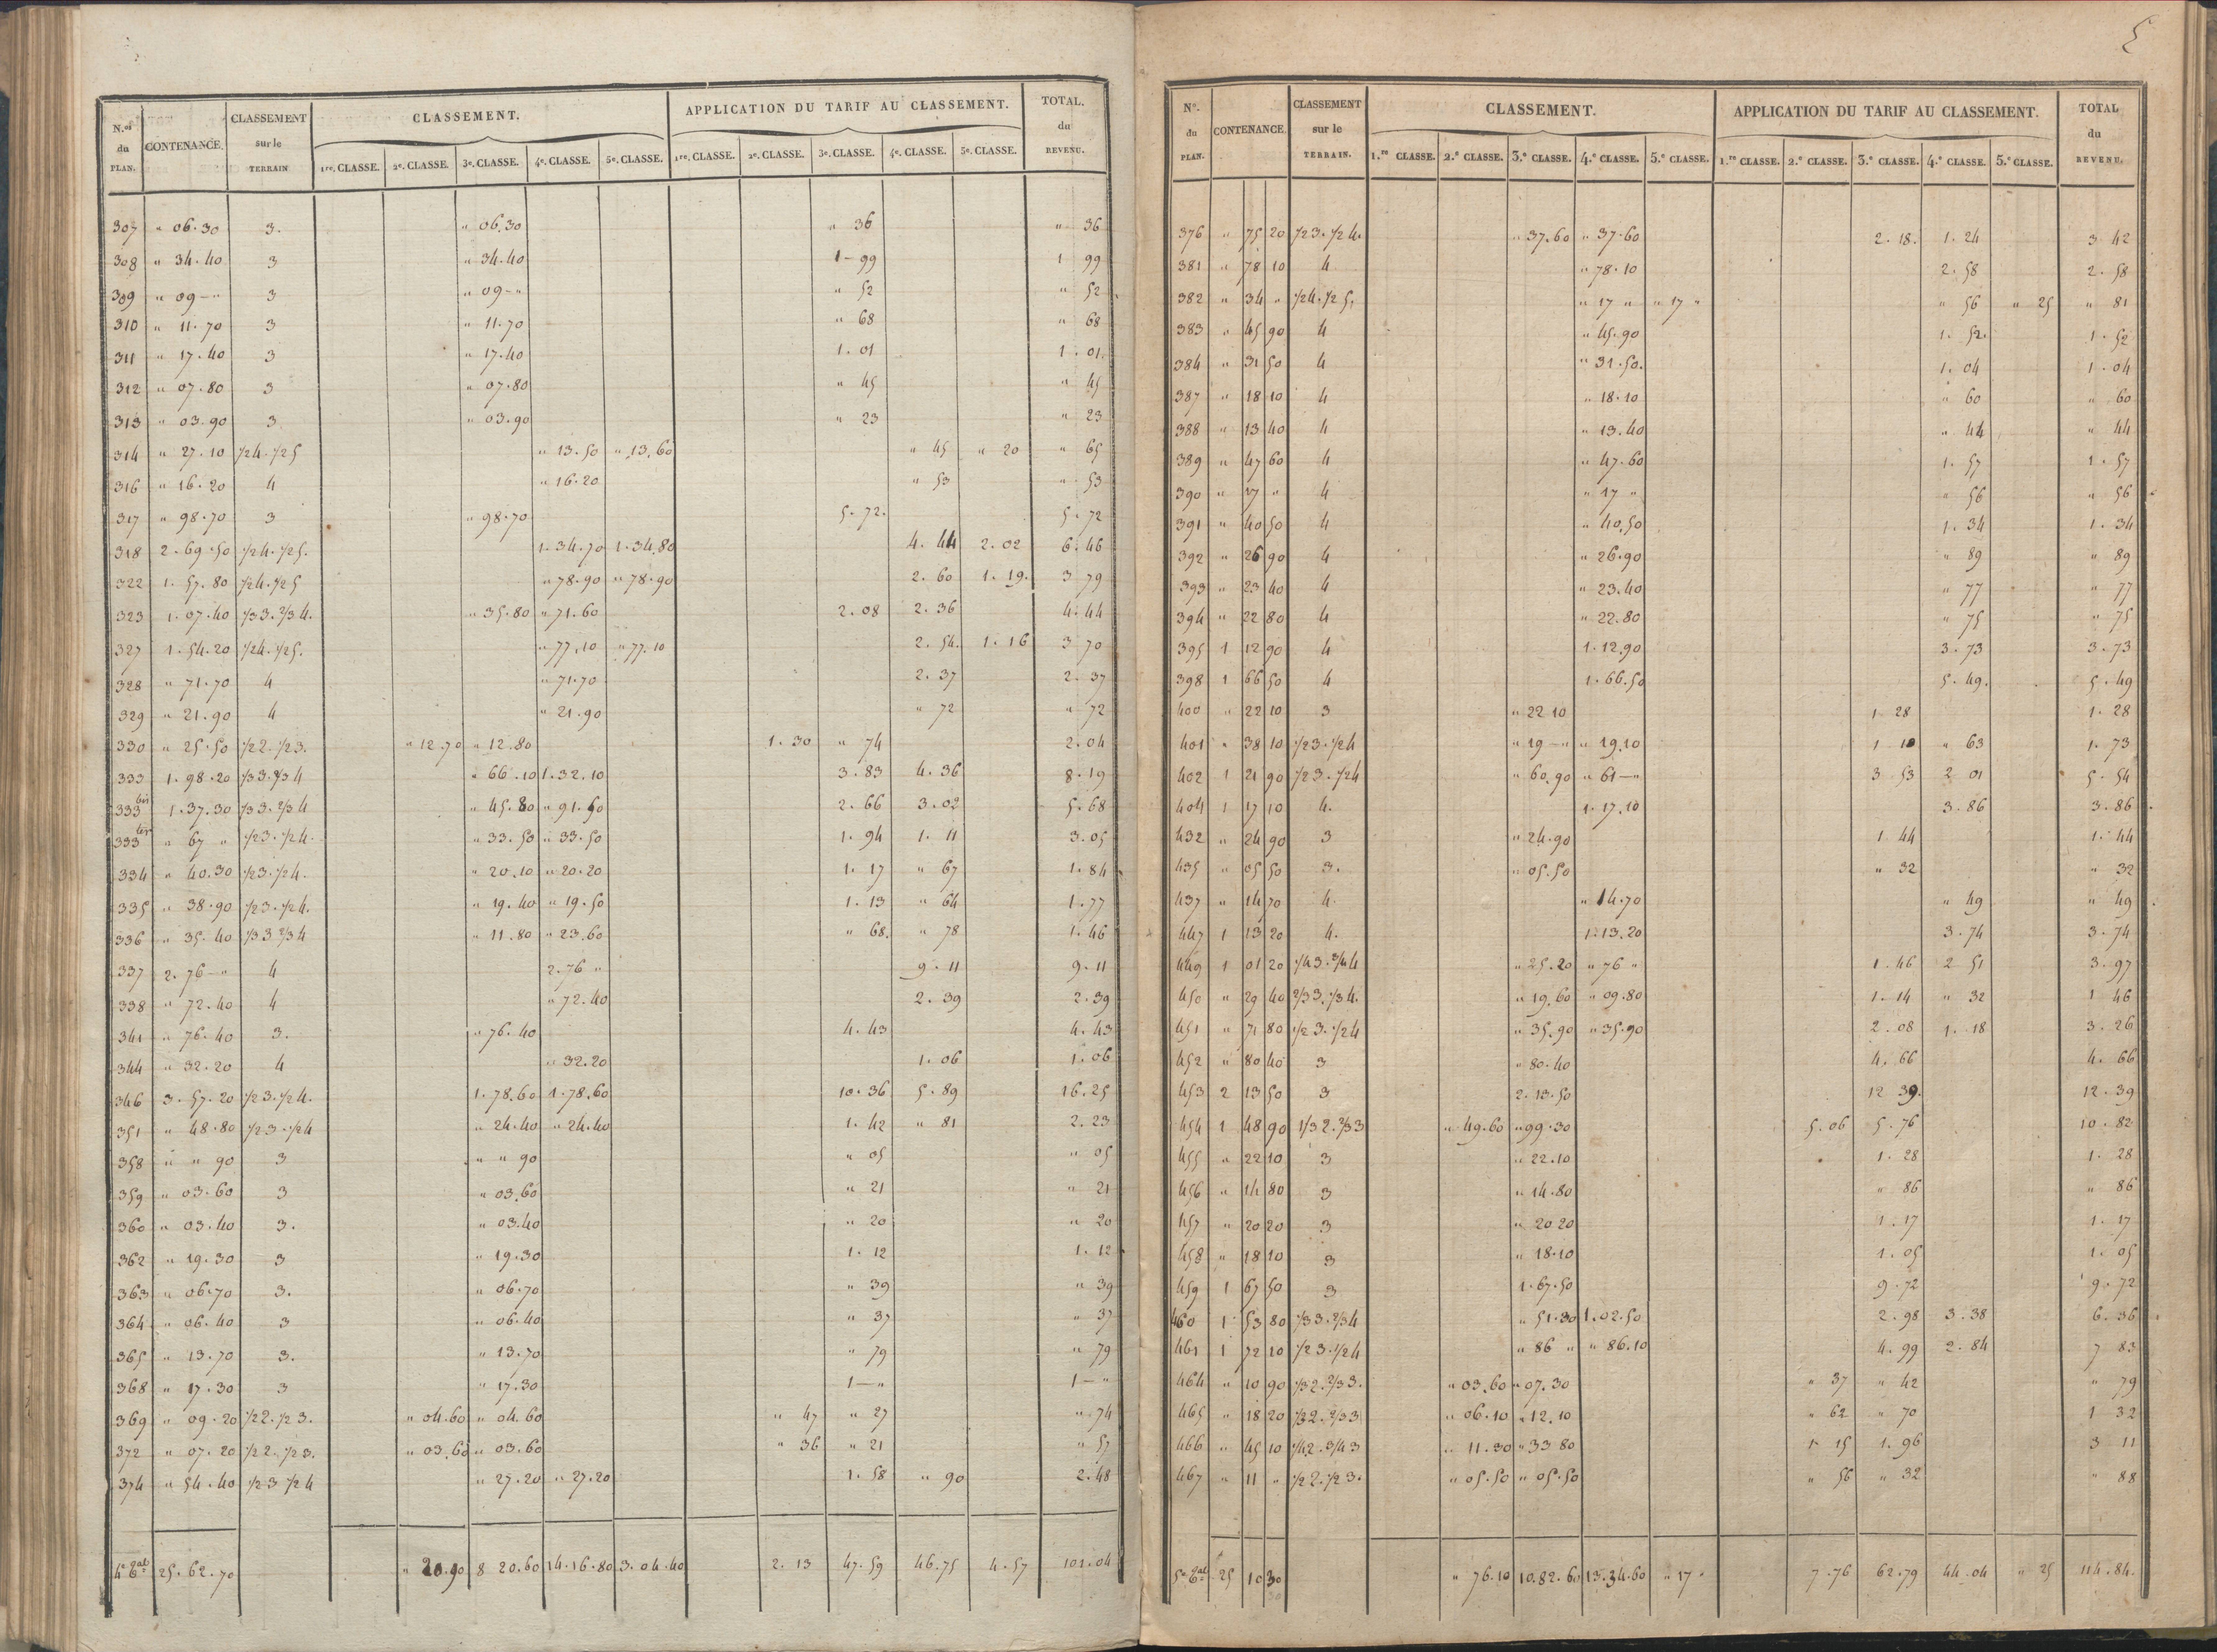 N.os du PLAN. CONTENANCE. CLASSEMENT sur le TERRAIN CLASSEMENT. APPLICATION DU TARIF AU CLASSEMENT. TOTAL. du REVENU.
1re. CLASSE. 2e. CLASSE. 3e. CLASSE. 4e. CLASSE. 5e. CLASSE. 1re. CLASSE. 2e. CLASSE. 3e. CLASSE. 4e. CLASSE. 5e. CLASSE.
307 " 06.30 3. " 06.30 " 36 " 36
308 " 34.40 3 " 34.40 1-99 1 99
309 " 09-" 3 " 09-" " 52 " 52
310 " 11.70 3 " 11.70 " 68 " 68
311 " 17.40 3 " 17.40 1.01 1.01.
312 " 07.80 3 " 07.80 " 45 " 45
313 " 03.90 3 " 03.90 " 23 " 23
314 " 27.10 1/2 4. 1/2 5 " 13.50 " 13.60 " 45 " 20 " 65
316 " 16.20 4 " 16.20 " 53 " 53
317 " 98.70 3 " 98.70 5.72. 5.72
318 2.69.50 1/2 4. 1/2 5. 1.34.70 1.34.80 4.44 2.02 6.46
322 1.57.80 1/2 4. 1/2 5 " 78.90 " 78.90 2.60 1.19. 3 79
323 1.07.40 1/3 3. 2/3 4. " 35.80 " 71.60 2.08 2.36 4.44
327 1.54.20 1/2 4. 1/2 5. " 77.10 " 77.10 2.54. 1.16 3 70
328 " 71.70 4 " 71.70 2.37 2.37
329 " 21.90 4 " 21.90 " 72 " 72
330 " 25.50 1/2 2. 1/2 3. " 12.70 " 12.80 1.30 " 74 2.04
333 1.98.20 1/3 3. 2/3 4 " 66.10 1.32.10 3.83 4.36 8.19
333 bis 1.37.30 1/3 3. 2/3 4 " 45.80 " 91.50 2.66 3.02 5.68
333 ter " 67 " 1/2 3. 1/2 4. " 33.50 " 33.50 1.94 1.11 3.05
334 " 40.30 1/2 3. 1/2 4. " 20.10 " 20.20 1.17 " 67 1.84
335 " 38.90 1/2 3. 1/2 4. " 19.40 " 19.50 1.13 " 64 1.77
336 " 35.40 1/3 3 2/3 4 " 11.80 " 23.60 " 68. " 78 1.46
337 2.76-" 4 2.76 " 9.11 9.11
338 " 72.40 4 " 72.40 2.39 2.39
341 " 76.40 3. " 76.40 4.43 4.43
344 " 32.20 4 " 32.20 1.06 1.06
346 3.57.20 1/2 3. 1/2 4. 1.78.60 1.78.60 10.36 5.89 16.25
351 " 48.80 1/2 3. 1/2 4 " 24.40 " 24.40 1.42 " 81 2.23
358 " " 90 3 " " 90 " 05 " 05
359 " 03.60 3 " 03.60 " 21 " 21
360 " 03.40 3. " 03.40 " 20 " 20
362 " 19.30 3 " 19.30 1.12 1.12
363 " 06.70 3. " 06.70 " 39 " 39
364 " 06.40 3 " 06.40 " 37 " 37
365 " 13.70 3. " 13.70 " 79 " 79
368 " 17.30 3 " 17.30 1-" 1-"
369 " 09.20 1/2 2. 1/2 3. " 04.60 " 04.60 " 47 " 27 " 74
372 " 07.20 1/2 2. 1/2 3. " 03.60 " 03.60 " 36 " 21 " 57
374 " 54.40 1/2 3 1/2 4 " 27.20 " 27.20 1.58 " 90 2.48
25.62.70 " 20.90 8 20.60 14.16.80 3.04.40 2.13 47.59 46.75 4.57 101.04
5
N.o du PLAN. CONTENANCE. CLASSEMENT sur le TERRAIN. CLASSEMENT. APPLICATION DU TARIF AU CLASSEMENT. TOTAL du REVENU.
1.re CLASSE. 2.e CLASSE. 3.e CLASSE. 4.e CLASSE. 5.e CLASSE. 1.re CLASSE. 2.e CLASSE. 3.e CLASSE. 4.e CLASSE. 5.e CLASSE.
376 " 75 20 1/2 3. 1/2 4. " 37.60 " 37.60 2.18. 1.24 3 42
381 " 78 10 4 " 78.10 2.58 2.58
382 " 34 " 1/2 4. 1/2 5. " 17 " " 17 " " 56 " 25 " 81
383 " 45 90 4 " 45.90 1.52. 1.52
384 " 31 50 4 " 31.50. 1.04 1.04
387 " 18 10 4 " 18.10 " 60 " 60
388 " 13 40 4 " 13.40 " 44 " 44
389 " 47 60 4 " 47.60 1.57 1.57
390 " 17 " 4 " 17 " " 56 " 56
391 " 40 50 4 " 40.50 1.34 1.34
392 " 26 90 4 " 26.90 " 89 " 89
393 " 23 40 4 " 23.40 " 77 " 77
394 " 22 80 4 " 22.80 " 75 " 75
395 1 12 90 4 1.12.90 3.73 3.73
398 1 66 50 4 1.66.50 5.49. 5.49
400 " 22 10 3 " 22 10 1 28 1.28
401 " 38 10 1/2 3. 1/2 4 " 19-" " 19.10 1 10 " 63 1.73
402 1 21 90 1/2 3. 1/2 4 " 60.90 " 61-" 3 53 2 01 5.54
404 1 17 10 4. 1.17.10 3.86 3.86
432 " 24 90 3 " 24.90 1.44 1.44
435 " 05 50 3. " 05.50 " 32 " 32
437 " 14 70 4. " 14.70 " 49 " 49
447 1 13 20 4. 1.13.20 3.74 3.74
449 1 01 20 1/4 3. 3/4 4 " 25.20 " 76 " 1.46 2 51 3.97
450 " 29 40 2/3 3. 1/3 4. " 19.60 " 09.80 1.14 " 32 1 46
451 " 71 80 1/2 3. 1/2 4 " 35.90 " 35.90 2.08 1.18 3.26
452 " 80 40 3 " 80.40 4.66 4.66
453 2 13 50 3 2.13.50 12 39. 12.39
454 1 48 90 1/3 2. 2/3 3 " 49.60 " 99.30 5.06 5.76 10.82
455 " 22 10 3 " 22.10 1.28 1.28
456 " 14 80 3 " 14.80 " 86 " 86
457 " 20 20 3 " 20 20 1.17 1.17
458 " 18 10 3 " 18.10 1.05 1.05
459 1 67 50 3 1.67.50 9.72 9.72
460 1 53 80 1/3 3. 2/3 4 " 51.30 1.02.50 2.98 3.38 6.36
461 1 72 10 1/2 3. 1/2 4 " 86 " " 86.10 4.99 2.84 7 83
464 " 10 90 1/3 2. 2/3 3. " 03.60 " 07.30 " 37 " 42 " 79
465 " 18 20 1/3 2. 2/3 3 " 06.10 " 12.10 " 62 " 70 1 32
466 " 45 10 1/4 2. 3/4 3 " 11.30 " 33 80 1.15 1.96 3 11
467 " 11 " 1/2 2. 1/2 3. " 05.50 " 05.50 " 56 " 32 " 88
25 10 30 " 76.10 10.82.60 13.34.60 " 17 " 7.76 62.79 44.04 " 25 114.84.